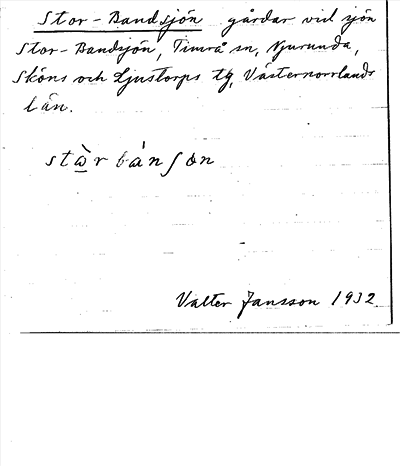 Stor-Bandsjön gårdar vid sjön
Stor-Bandsjön, Timrå sn, Njurunda,
Sköns och Ljustorps tg, Västernorrlands
län.
stὼ̲r bánʃɷn
Valter Jansson 1932